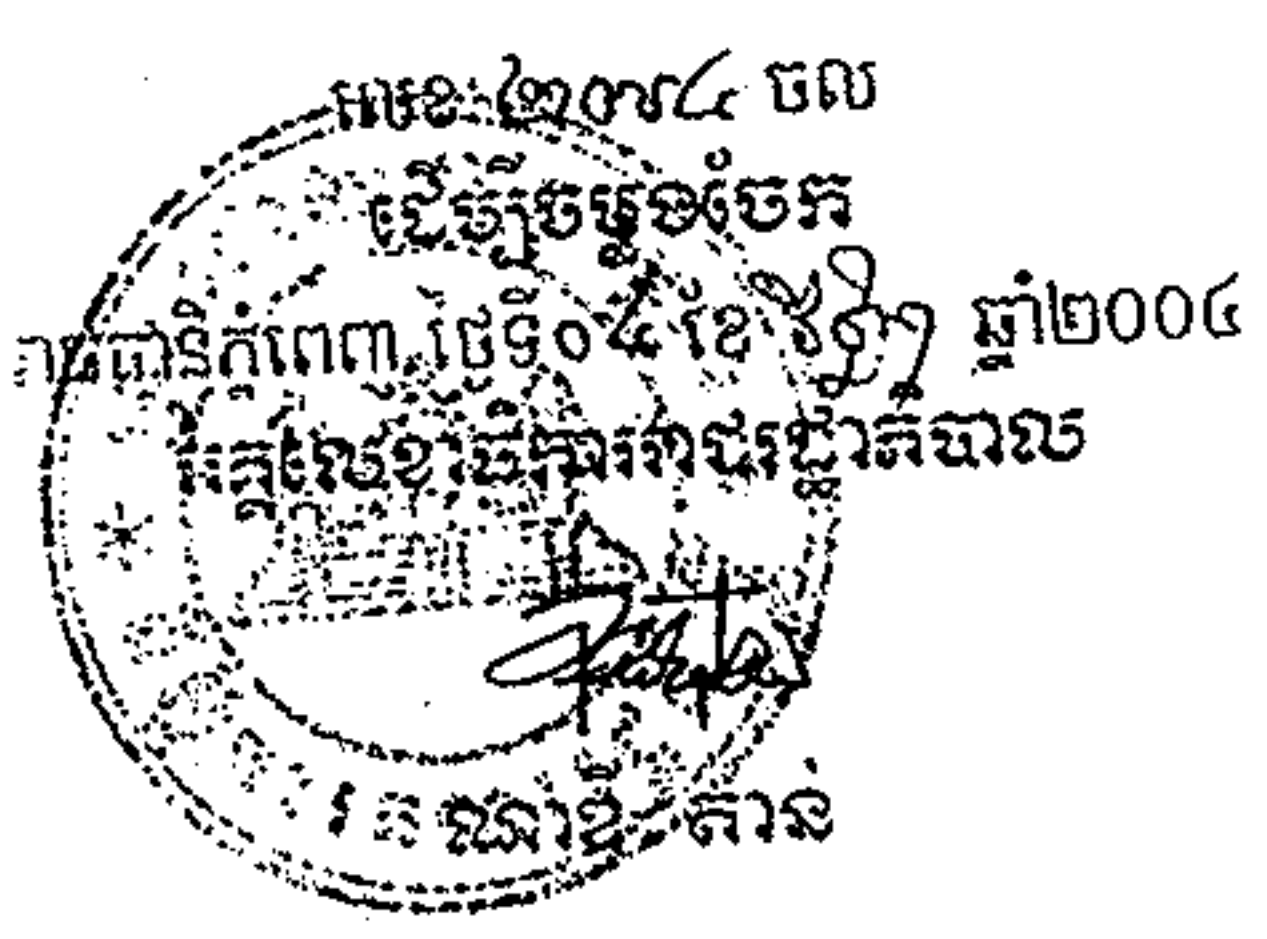 លេខ ២០៧៤ ចល
ដើម្បីចម្លងចែក
រាជធានីភ្នំពេញ ថ្ងៃទី០៤ ខែ ឆ្នាំ២០០៤
អគ្គលេខាធិការរាជរដ្ឋាភិបាល
ណាឌី តាន់